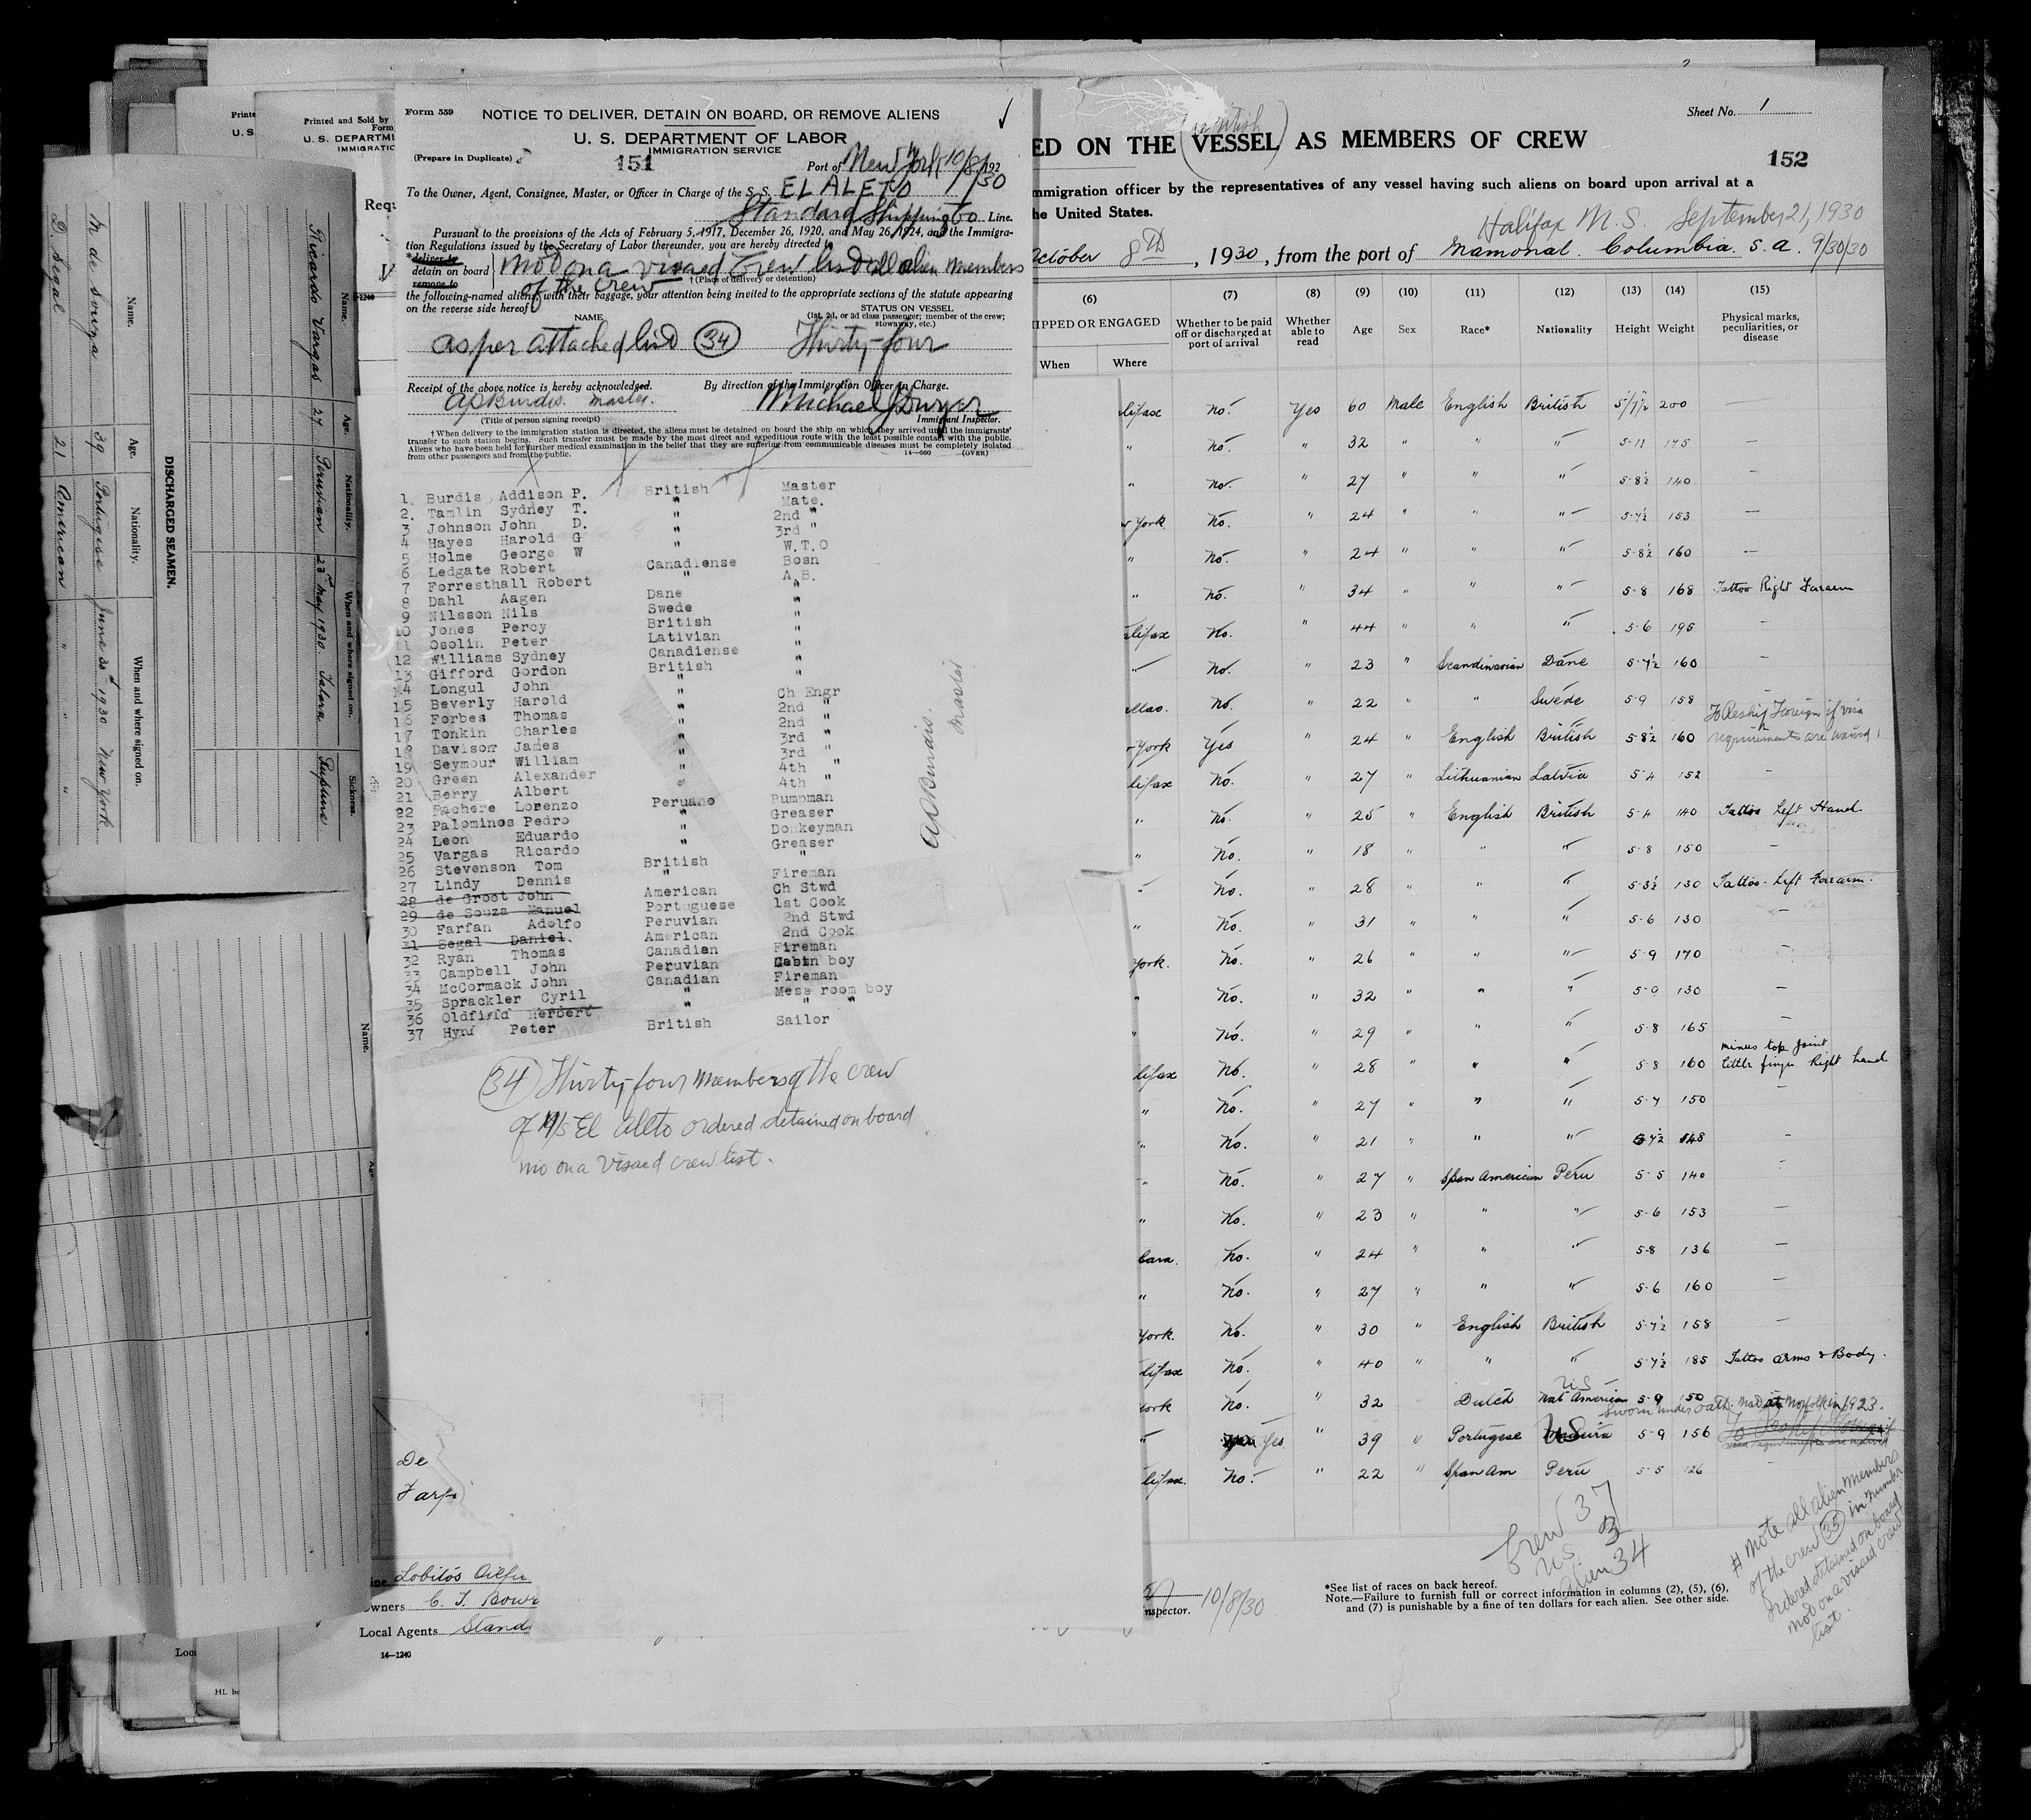 Form 559
NOTICE TO DELIVER, DETAIN ON BOARD, OR REMOVE ALIENS
U. S. DEPARTMENT OF LABOR
IMMIGRATION SERVICE
(Prepare in Duplicate)
151
Port of New York 10/8/1930
To the Owner, Agent, Consignee, Master, or Officer in Charge of the S. S. EL ALETO
Standard Shipping Co Line.
Pursuant to the provisions of the Acts of February 5, 1917, December 26, 1920, and May 26, 1924, and the Immigra-
tion Regulations issued by the Secretary of Labor thereunder, you are hereby directed to
*deliver to
detain on board
remove to
of the Crew
†(Place of delivery or detention)
the following-named aliens, with their baggage, your attention being invited to the appropriate sections of the statute appearing
on the reverse side hereof
NAME
STATUS ON VESSEL
(1st, 2d, or 3d class passenger; member of the crew;
stowaway, etc.)
as per attached list 34 Thirty-four
Receipt of the above notice is hereby acknowledged.
By direction of the Immigration Officer in Charge.
AP Burdis. master.
(Title of person signing receipt)
Immigrant Inspector.
†When delivery to the immigration station is directed, the aliens must be detained on board the ship on which they arrived until the immigrants'
transfer to such station begins. Such transfer must be made by the most direct and expeditious route with the least possible contact with the public.
Aliens who have been held for further medical examination in the belief that they are suffering from communicable diseases must be completely isolated
from other passengers and from the public.
14—660 (OVER)
1. Burdis Addison P. British Master
2. Tamlin Sydney T. " Mate.
3 Johnson John D. " 2nd "
4 Hayes Harold G " 3rd "
5 Holme George W " W.T.O
6 Ledgate Robert Canadiense Bosn
7 Forresthall Robert " A.B.
8 Dahl Aagen Dane "
9 Nilsson Nils Swede "
10 Jones Percy British "
11 Osolin Peter Lativian "
12 Williams Sydney Canadiense "
13 Gifford Gordon British "
14 Longul John " "
15 Beverly Harold " Ch Engr
16 Forbes Thomas " 2nd "
17 Tonkin Charles " 2nd "
18 Davison James " 3rd "
19 Seymour William " 3rd "
20 Green Alexander " 4th "
21 Berry Albert " 4th "
22 Pachere Lorenzo Peruano Pumpman
23 Palominos Pedro " Greaser
24 Leon Eduardo " Donkeyman
25 Vargas Ricardo " Greaser
26 Stevenson Tom British "
27 Lindy Dennis " Fireman
28 de Groot John American Ch Stwd
29 de Souza Manuel Portuguese 1st Cook
30 Farfan Adolfo Peruvian 2nd Stwd
31 Segal Daniel. American 2nd Cook
32 Ryan Thomas Canadian Fireman
33 Campbell John Peruvian Cabin boy
34 McCormack John Canadian Fireman
35 Sprackler Cyril " Mess room boy
36 Oldfield Herbert " " "
37 Hynd Peter British Sailor
AP Burdis.
Master
34 Thirty-four members of the crew
of M/S El Aleto ordered detained on board
no on a visaed crew list.
ED ON THE VESSEL AS MEMBERS OF CREW
Sheet No. 1
152
mmigration officer by the representatives of any vessel having such aliens on board upon arrival at a
he United States.
Halifax N.S. September 21, 1930
October 8th, 1930, from the port of Mamonal. Columbia. S.a. 9/30/30
(6) (7) (8) (9) (10) (11) (12) (13) (14) (15)
IPPED OR ENGAGED
When Where
Whether to be paid off or discharged at port of arrival
Whether able to read
Age
Sex
Race*
Nationality
Height
Weight
Physical marks, peculiarities, or disease
lifax No. Yes 60 Male English British 5/7½ 200
" No. " 32 " " " 5-11 175 —
" No. " 27 " " " 5-8½ 140
York No. " 24 " " " 5-7½ 153 —
" No. " 24 " " " 5-8½ 160 —
" No. " 34 " " " 5-8 168 Tattoo Right Forearm
lifax No. " 44 " " " 5-6 195 —
" No. " 23 " Scandinavian Dane 5-7½ 160 —
No. " 22 " " Swede 5-9 158 —
To Reship Foreign if visa
York Yes " 24 " English British 5-8½ 160 requirements are waived
lifax No. " 27 " Lithuanian Latvia 5-4 152 —
" No. " 25 " English British 5-4 140 Tattoo Left Hand
" No. " 18 " " " 5-8 150 —
" No. " 28 " " " 5-3½ 130 Tattoo - Left Forearm.
" No. " 31 " " " 5-6 130 —
York. No. " 26 " " " 5-9 170 —
" No. " 32 " " " 5-9 130 —
" No. " 29 " " " 5-8 165 —
minus top joint
lifax No. " 28 " " " 5-8 160 little finger Right hand
" No. " 27 " " " 5-7 150 —
" No. " 21 " " " 148 —
" No. " 27 " Span American Peru 5-5 140 —
" No. " 23 " " " 5-6 153 —
No. " 24 " " " 5-8 136 —
" No. " 27 " " " 5-6 160 —
York. No. " 30 " English British 5-7½ 158 —
lifax No. " 40 " " " 5-7½ 185 Tattoo arms & Body.
US
York No. " 32 Dutch Nat American 5-9 150
sworn under oath. Norfolk in 1923.
" Yes " 39 " Portugese US 5-9 156
lifax. No. " 22 " Span Am Peru 5-5 126 —
Crew 37
US 3
Alien 34
# Note all alien members
of the crew 35 in number
ordered detained on board
not on a visaed crew
list
*See list of races on back hereof.
Note.—Failure to furnish full or correct information in columns (2), (5), (6),
and (7) is punishable by a fine of ten dollars for each alien. See other side.
nspector. 10/8/30
De
Farf
Lobitos Oilfi
Owners C. T. Bowr
Local Agents Stand
14—1240
Printed and Sold by
Form
U. S. DEPARTM
IMMIGRATIC
DISCHARGED SEAMEN.
Name. Age. Nationality. When and where signed on.
M de Souza 39 Portugese June 30th 1930 New York
D. Segal 21 American " " "
Name. Age. Nationality. When and where signed on. Sickness.
Ricardo Vargas 27 Peruvian 23rd May 1930. Talara
Name.
Age